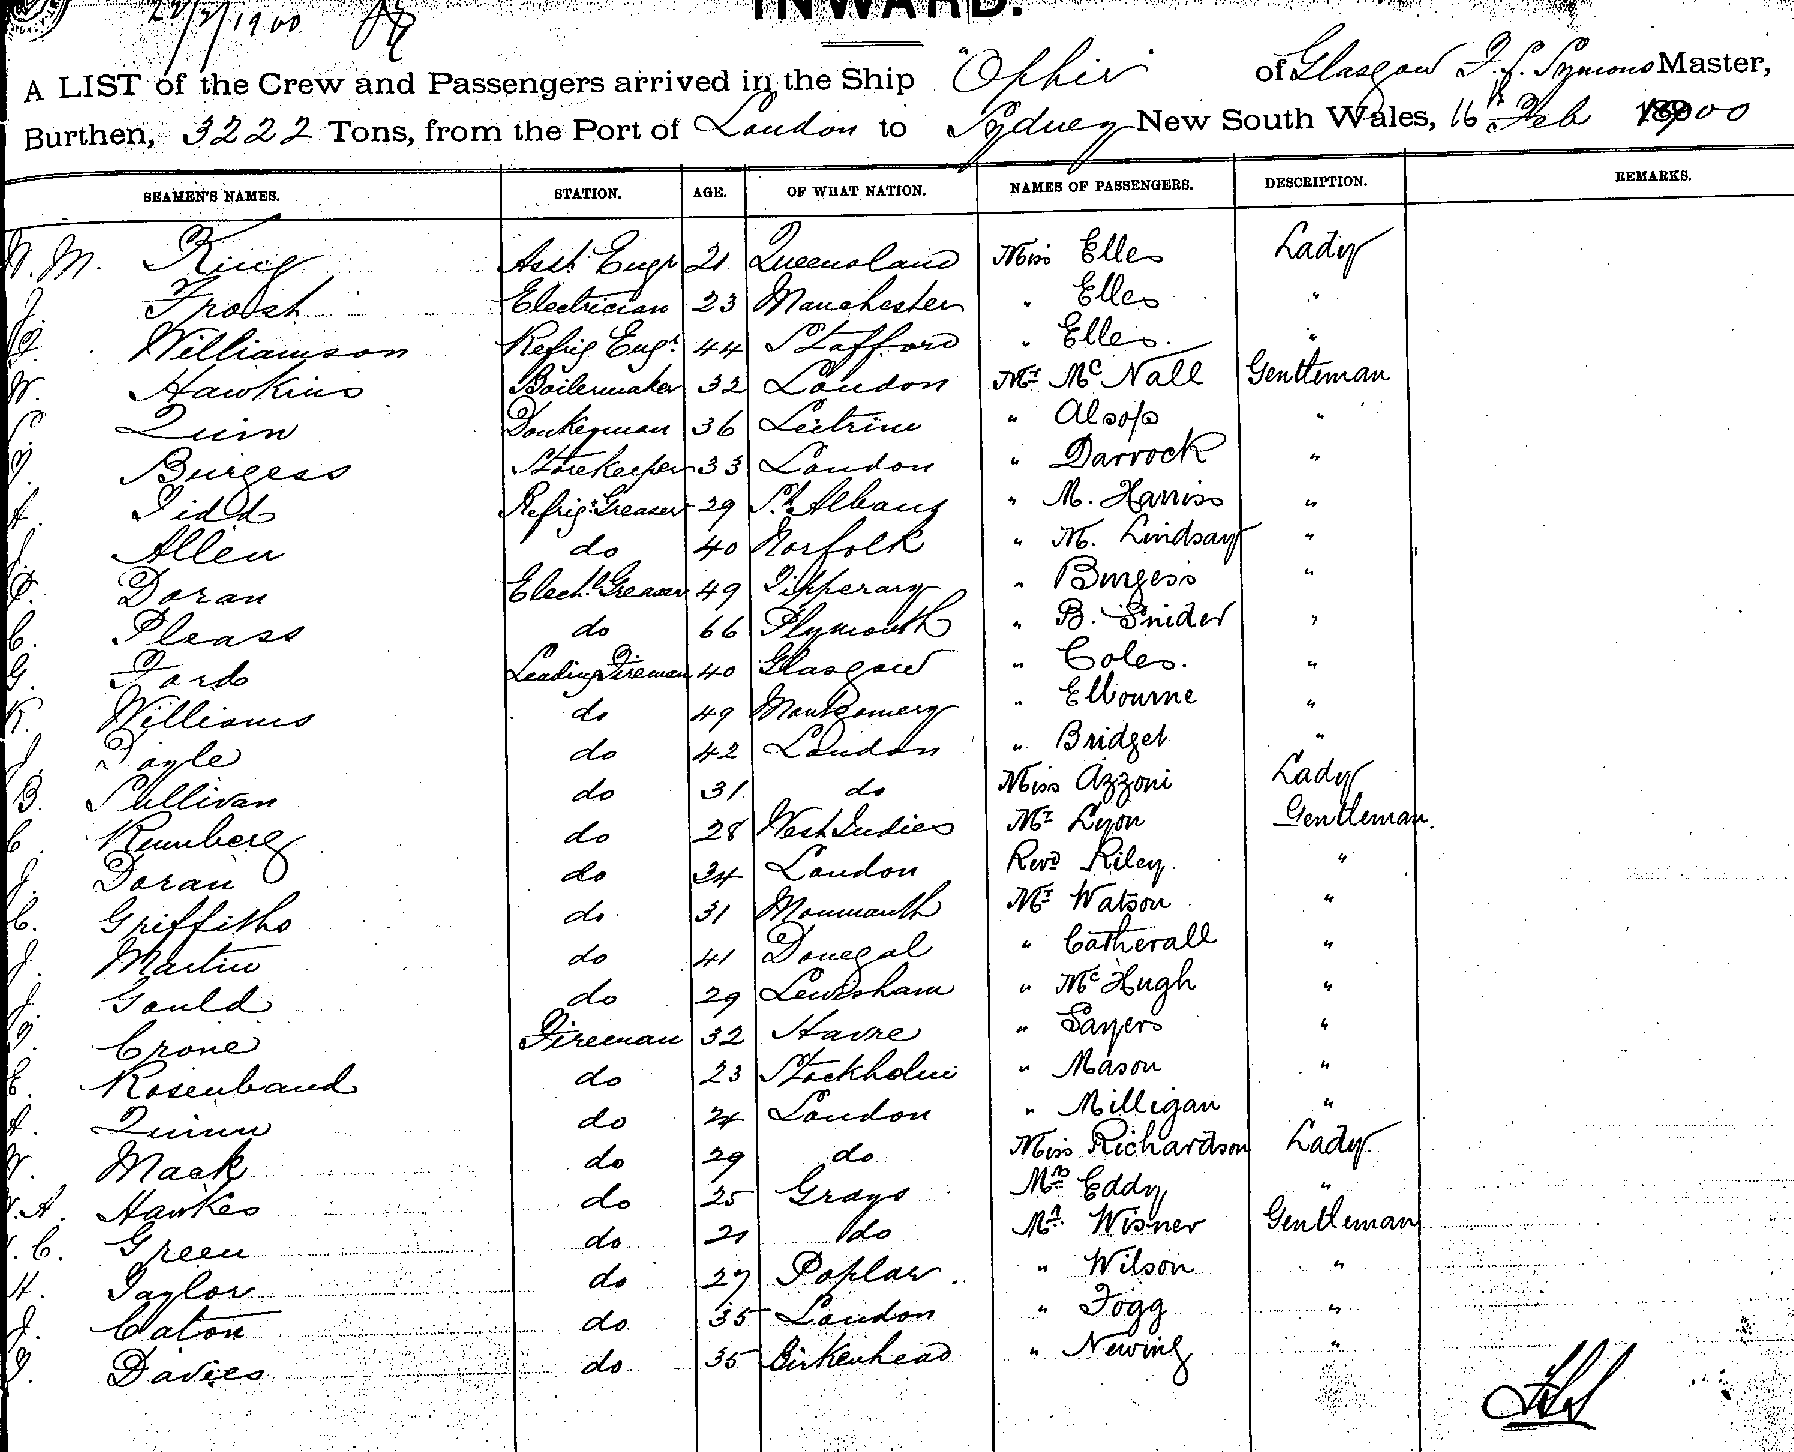 INWARD.
A LIST of the Crew and Passengers arrived in the Ship "Ophir" of Glasgow Symons Master,
Burthen, 3222 Tons, from the Port of London to Sydney New South Wales, 16th Feb 1900
SEAMEN'S NAMES. STATION. AGE. OF WHAT NATION. NAMES OF PASSENGERS. DESCRIPTION. REMARKS.
M. King Asst. Engr 21 Queensland Miss Elles Lady
J. Froost Electrician 23 Manchester " Elles "
Williamson Refrig Engr. 44 Stafford " Elles. "
W. Hawkins Boilermaker 32 London Mr. McNall Gentleman
Quin Donkeyman 36 Leitrim " Alsop "
Burgess Storekeeper 33 London " Darrock "
Tidd Refrig. Greaser 29 St. Albans " M. Harriss "
J. Allen do 40 Norfolk " M. Lindsay "
Doran Elect. Greaser 49 Tipperary " Burgess "
C. Pleass do 66 Plymouth " B. Snider "
G. Ford Leading Fireman 40 Glasgow " Coles. "
R. Williams do 49 Montgomery " Elbourne "
J. Doyle do 42 London " Bridget "
B. Sullivan do 31 do Miss Azzoni Lady
C. Rumberg do 28 West Indies Mr. Lyon Gentleman.
J. Doran do 34 London Revd Riley. "
C. Griffiths do 31 Monmouth Mr. Watson "
J. Martin do 41 Donegal " Catherall "
J. Gould do 29 Lewisham " McHugh "
Crone Fireman 32 Havre " Sayers "
Rosenbaud do 23 Stockholm " Mason "
Quinn do 24 London " Milligan "
W. Mack do 29 do Miss Richardson Lady.
A. Hawkes do 25 Grays Mrs Eddy "
C. Green do 21 do Mr. Wisner Gentleman
H. Taylor do 27 Poplar. " Wilson "
J. Caton do 35 London " Fogg "
Davies do 35 Birkenhead " Newing "